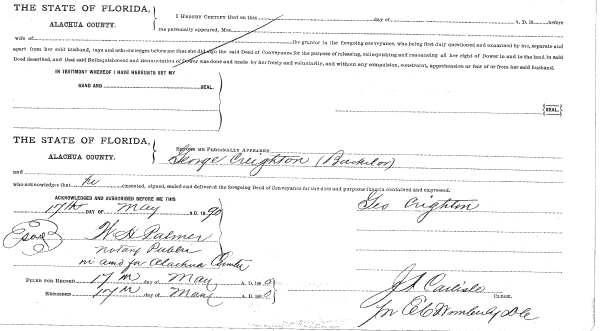 THE STATE OF FLORIDA,
ALACHUA COUNTY.
I HEREBY CERTIFY that on this day of A. D. 18 before
me personally appeared, Mrs.
wife of the grantor in the foregoing conveyance, who being first duly questioned and examined by me, separate and
apart from her said husband, says and acknowledges before me that she did sign the said Deed of Conveyance for the purpose of releasing, relinquishing and renouncing all her right of Dower in and to the land in said
Deed described, and that said Relinquishment and Renunciation of Dower was done and made by her freely and voluntarily, and without any compulsion, constraint, apprehension or fear of or from her said husband.
IN TESTIMONY WHEREOF I HAVE HEREUNTO SET MY
HAND AND SEAL.
{SEAL.}
THE STATE OF FLORIDA,
ALACHUA COUNTY.
BEFORE ME PERSONALLY APPEARED
George Creighton (Bachelor)
and
who acknowledges that he executed, signed, sealed and delivered the foregoing Deed of Conveyance for the uses and purposes therein contained and expressed.
ACKNOWLEDGED AND SUBSCRIBED BEFORE ME THIS
17th DAY OF May A. D. 1890
Geo Crighton
W. H. Palmer
Notary Public
in and for Alachua
FILED FOR RECORD 17 day of May A. D. 189
RECORDED 17 day of May A. D. 189
J A Carlisle
CLERK.
pr E C Wimberly D.C.